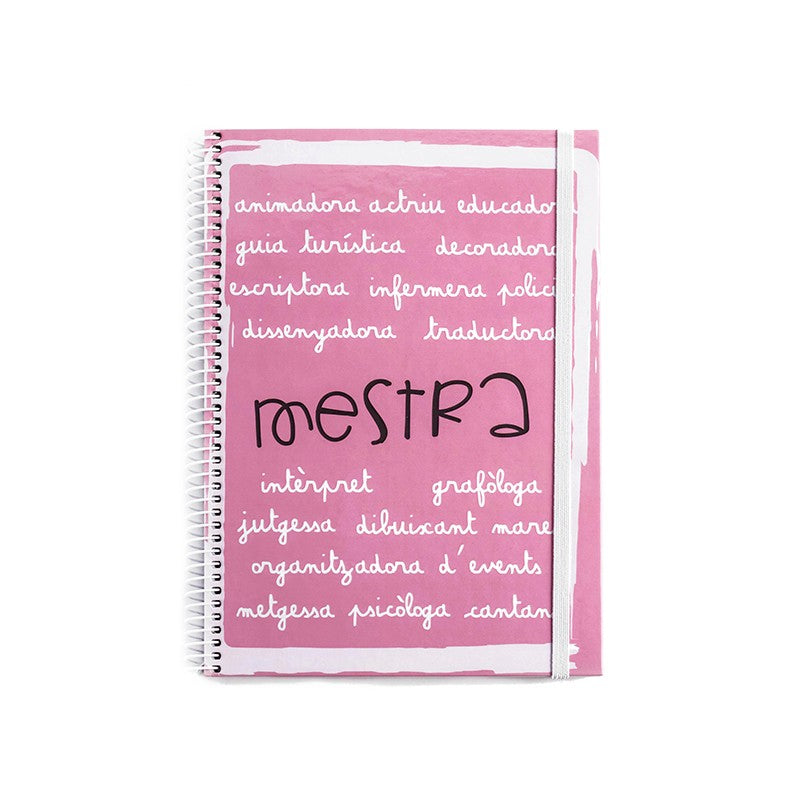 animadora actriu educador
guia turística decoradora
escriptora infermera polici
dissenyadora traductora
mestra
intèrpret grafòloga
jutgessa dibuixant mare
organitzadora d'events
metgessa psicòloga cantan